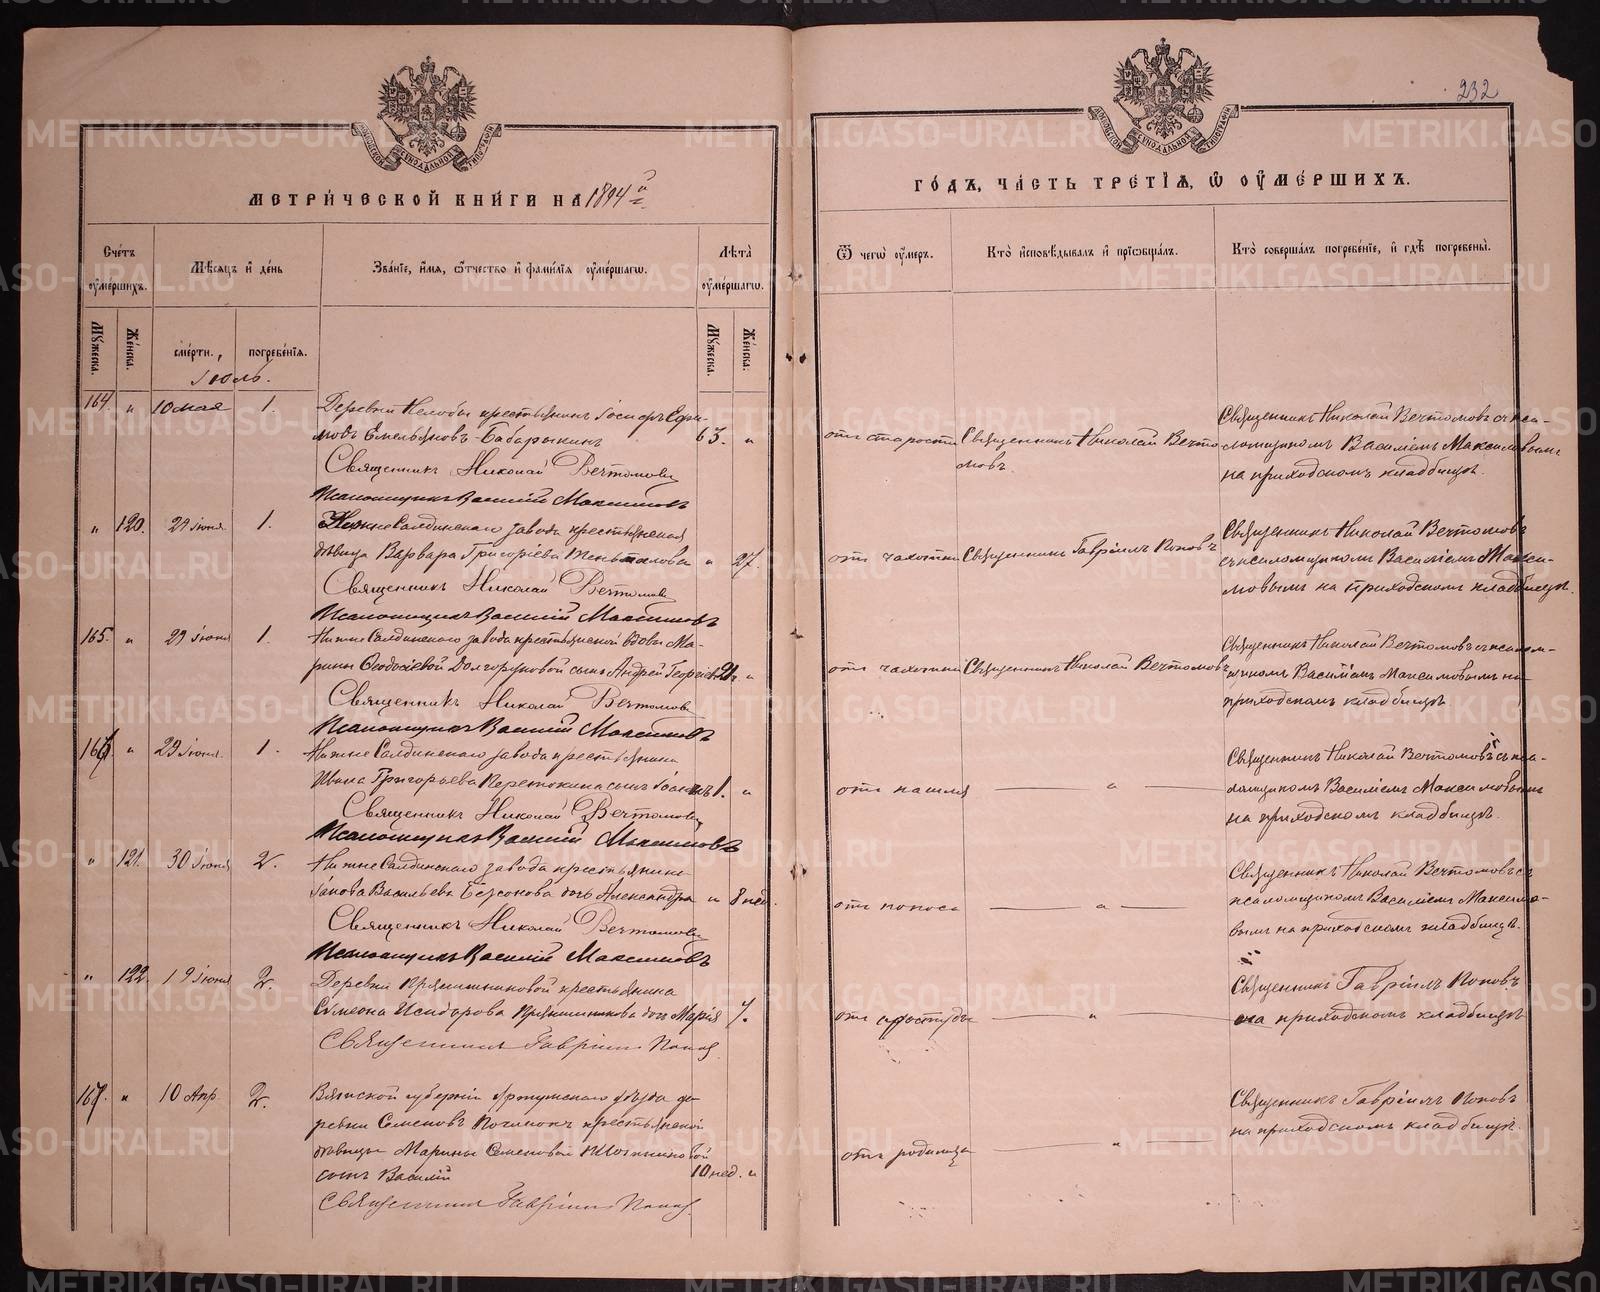 232
МЕТРИ́ЧЕСКОЙ КНИ́ГИ НА 1894 й
ГО́ДЪ, ЧА́СТЬ ТРЕ́ТІЯ, Ѿ ОУ҆МЕ́РШИХЪ.
Счетъ оу҆мершихъ.
Мѣсяцъ и день
Званіе, имя, ѻтчество и фамилія оу҆мершагѡ.
Лѣта оу҆мершагѡ.
Ѿ чегѡ оу҆меръ.
Кто исповѣдывалъ и пріѡбщалъ.
Кто совершалъ погребеніе, и гдѣ погребены.
Мужеска. Женска. смерти. погребенія. Мужеска. Женска.
Іюль.
164. " 10 мая 1. Деревни Нелобы крестьянинъ Іосифъ Ефи-
мовъ Емельяновъ-Бабарыкинъ 63. "
отъ старости Священникъ Николай Вечто
мовъ.
Священникъ Николай Вечтомовъ съ пса-
ломщикомъ Василіемъ Максимовымъ
на приходскомъ кладбищѣ.
Священникъ Николай Вечтомовъ
Псаломщикъ Василій Максимовъ
" 120. 29 іюня 1. Нижне Салдинскаго завода крестьянская
дѣвица Варвара Григоріева " 27.
отъ чахотки Священникъ Гавріилъ Поповъ
Священникъ Николай Вечтомовъ
съ псаломщикомъ Василіемъ Макси-
мовымъ на приходскомъ кладбищѣ.
Священникъ Николай Вечтомовъ
Псаломщикъ Василій Максимовъ
165. " 29 іюня 1. Нижне Салдинскаго завода крестьянской вдовы Ма-
рины Ѳеодосіевой Долгоруковой сынъ Андрей Георгіевъ 21. "
отъ чахотки Священникъ Николай Вечтомовъ
Священникъ Николай Вечтомовъ съ псалом-
щикомъ Василіемъ Максимовымъ на
приходскомъ кладбищѣ
Священникъ Николай Вечтомовъ
Псаломщикъ Василій Максимовъ
166. " 29 іюня 1. Нижне Салдинскаго завода крестьянина
Ивана Григорьева сынъ Іоаннъ 1. "
отъ кашля — " —
Священникъ Николай Вечтомовъ съ пса-
ломщикомъ Василіемъ Максимовымъ
на приходскомъ кладбищѣ.
Священникъ Николай Вечтомовъ
Псаломщикъ Василій Максимовъ
" 121. 30 іюня 2. Нижне Салдинскаго завода крестьянина
Іакова Васильева Безсонова дочь Александра " 8 нед.
отъ поноса — " —
Священникъ Николай Вечтомовъ съ
псаломщикомъ Василіемъ Максимо-
вымъ на приходскомъ кладбищѣ.
Священникъ Николай Вечтомовъ
Псаломщикъ Василій Максимовъ
" 122. 19 іюня 2. Деревни Прянишниковой крестьянина
Сѵмеона Исидорова Прянишникова дочь Марія 7.
отъ простуды — " —
Священникъ Гавріилъ Поповъ
на приходскомъ кладбищѣ
Священникъ Гавріилъ Поповъ
167. " 10 Апр. 2. Вятской губерніи уѣзда де-
ревни Семеновъ Починокъ крестьянской
дѣвицы Марины Семеновой
сынъ Василій 10 нед. "
отъ родимца — " —
Священникъ Гавріилъ Поповъ
на приходскомъ кладбищѣ.
Священникъ Гавріилъ Поповъ
METRIKI.GASO-URAL.RU